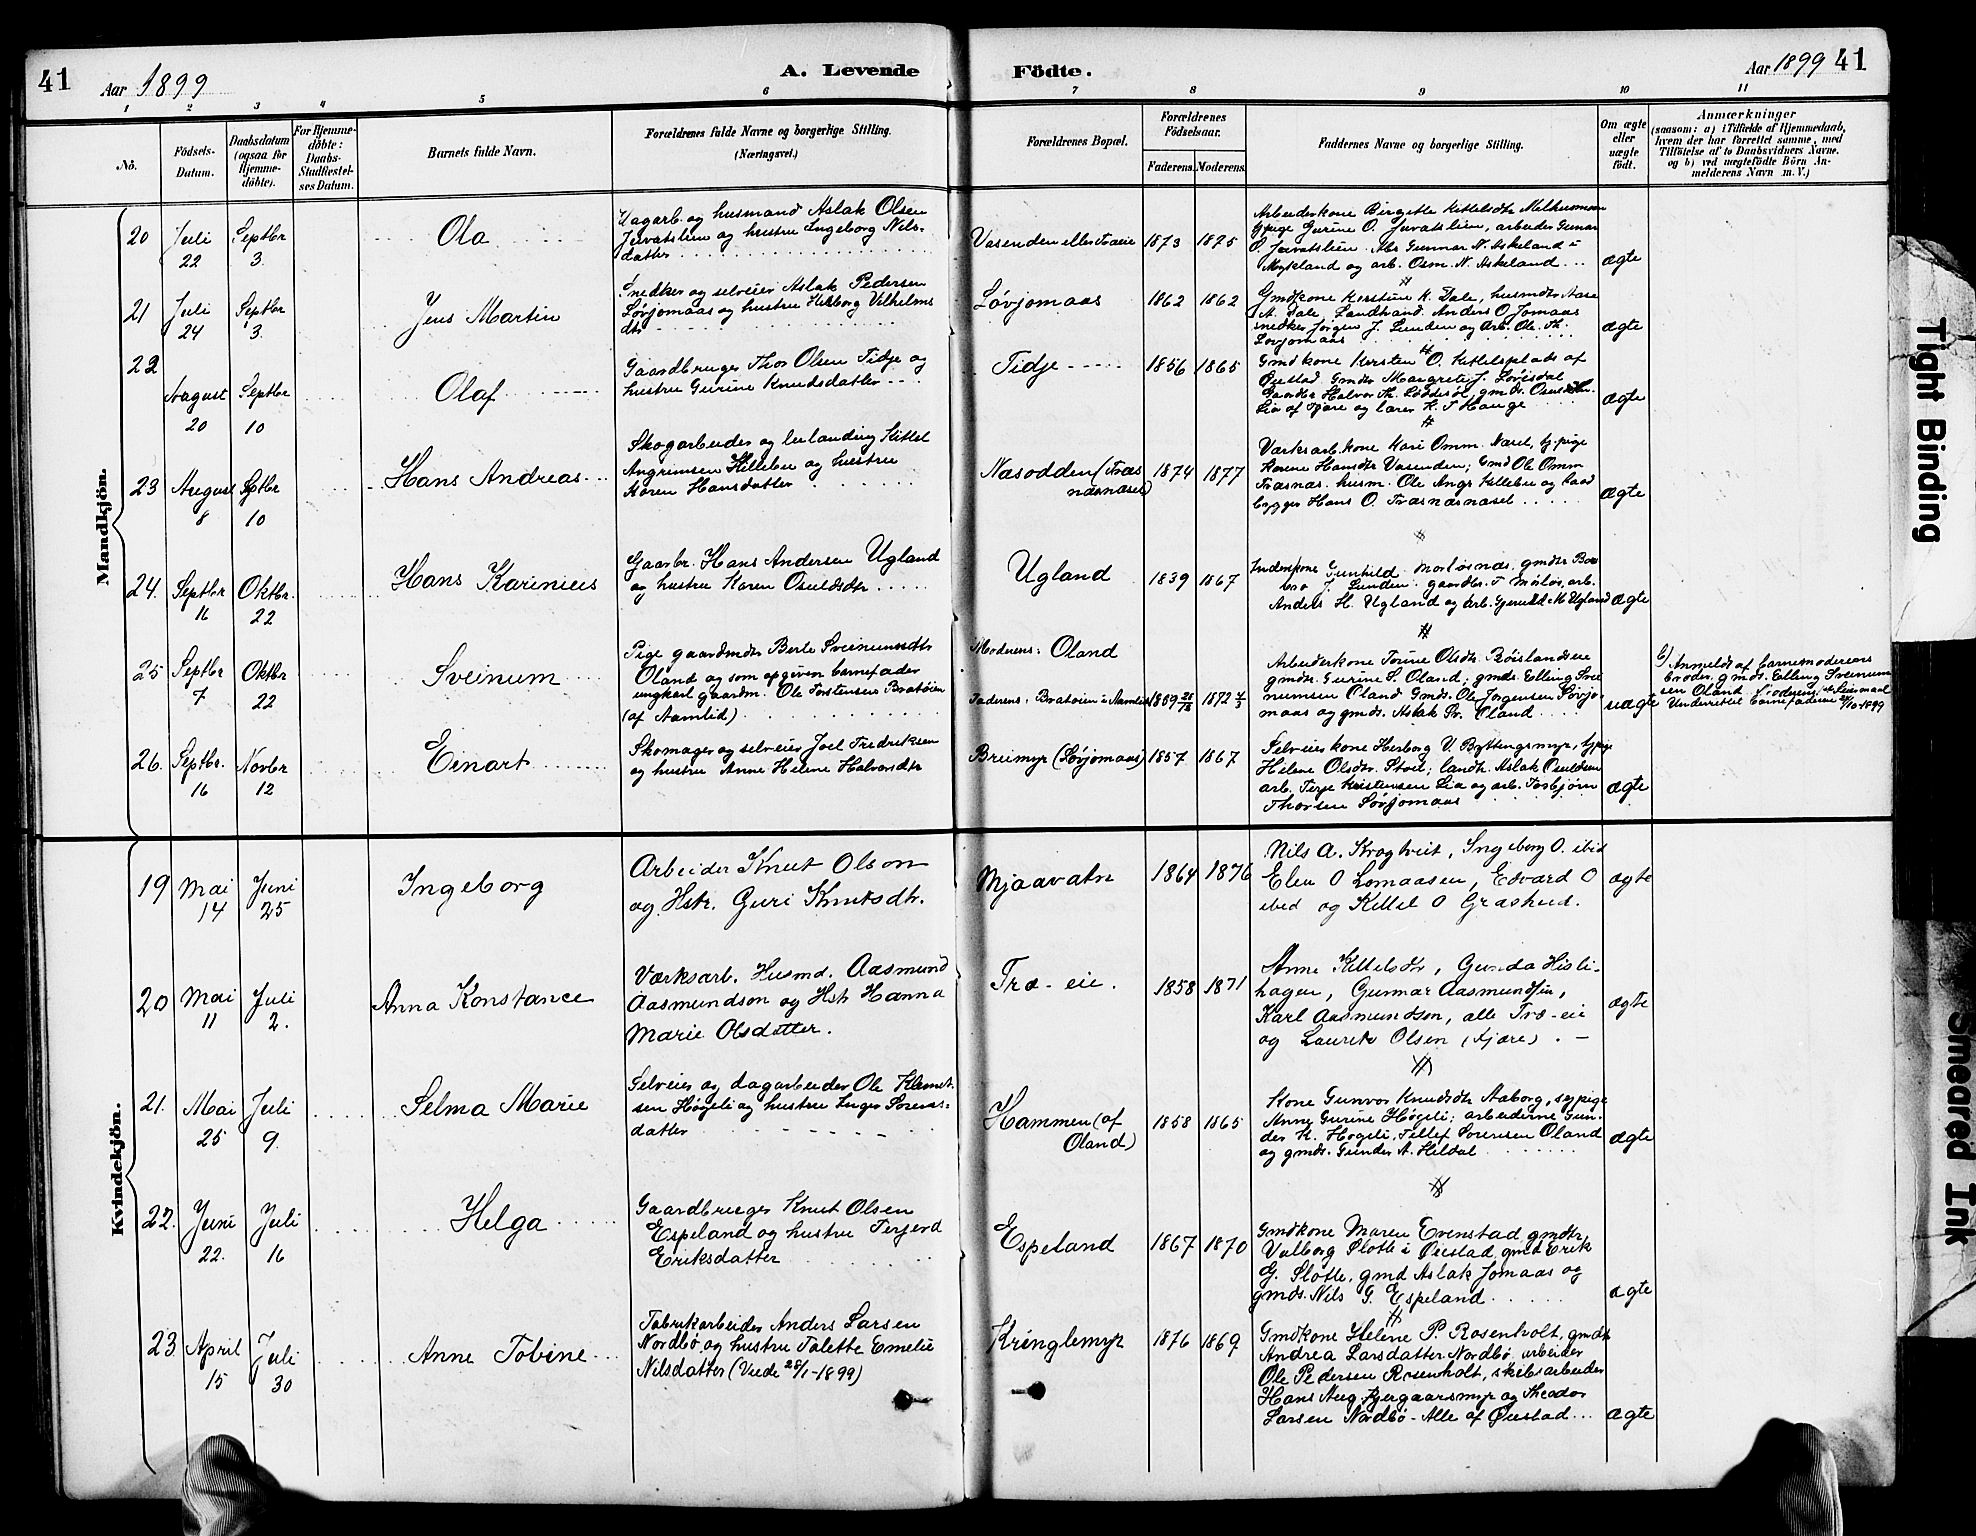 41 Aar 1899 A. Levende Födte. Aar 1899 41
1 2 3 4 5 6 7 8 9 10 11
No. Födsels-Datum. Daabsdatum (ogsaa for Hjemme-döbte). For Hjemme-döbte: Daabs-Stadfæstel-ses Datum. Barnets fulde Navn. Forældrenes fulde Navne og borgerlige Stilling. (Næringsvei.) Forældrenes Bopæl. Forældrenes Födselsaar. Faderens. Moderens. Faddernes Navne og borgerlige Stilling. Om ægte eller uægte födt. Anmærkninger (saasom: a) i Tilfælde af Hjemmedaab, hvem der har forrettet samme, med Tilföielse af to Daabsvidners Navne. og b) ved uægtefödte Börn An-melderens Navn m. V.)
Mandkjön.
20 Juli 22 Septbr 3. Ola
Dagarb. og husmand Aslak Olsen
Jurvatslien og hustru Ingeborg Nils-
datter
Vasenden eller Træeie 1873 1875
Arbeiderkone Birgitte Kittelsdtr
pige Gurine O. Jurvatslien, arbeider Gunar
O. Jurvatslien. Gunnar N. Askeland i
Mykland og arb. Osm. N. Askeland
ægte
21 Juli 24 Septbr 3. Jens Martin
Snedker og selveier Aslak Pedersen
Løvjomaas og hustru Herborg Vilhelms
dtr
Løvjomaas 1862 1862
Gmdkone Kerstine K. Dale, husmdtr Aase
A. Dale, Landhand. Anders O Jomaas
snedker Jørgen J. Lunden og Arb. Ole Th.
Løvjomaas
ægte
22 August 20 Septbr 10 Olaf
Gaardbruger Thor Olsen Tidje og
hustru Gurine Knudsdatter
Tidje 1856 1865
Gmdkone Kersten O. Kittelsplads af
Øiestad. Gmdtr Margrete J. Løvisdal
Gaardbr Halvor Th. Løddesøl, gmds. Osuld
Lia af Fjære og lærer K. T Hauge
ægte
23 August 8 Septbr 10 Hans Andreas
Skogarbeider og leilænding Kittel
Angrimsen Hillebu og hustru
Karen Hansdatter
Næsodden (Træs
næsnæset) 1874 1877
Værksarb. kone Kari Omm. Næset, tj. pige
Karene Hansdtr Vasenden; Gmd Ole Omm
Træsnæs. husm. Ole Angr Hillebu og baad
bygger Hans O. Træsnæsnæset
ægte
24. Septbr 16 Oktbr. 22 Hans Kareinius
Gaardbr. Hans Andersen Ugland
og hustru Karen Osuldsdtr
Ugland 1839 1867
Inderstkone Gunhild Morløsnæs, gmdtr Bar
bro J. Lunden. gaardbr. T Mørløs, arb.
Anders H. Ugland og arb. Gjeruld M Ugland
ægte
25 Septbr 7 Oktbr 22 Sveinum
Pige gaardmdtr Berte Sveinumsdtr
Oland og som opgiven barnefader
ungkarl gaardm. Ole Torstensen Bratøien
(af Aamlid)
Moderens: Oland
Faderens: Bratøien i Aamlid 1869 1872
Arbeiderkone Torine Olsdtr. Røislandseie
gmdtr. Gurine S. Oland; gmds. Elling Svei
numsen Oland Gmds. Ole Jørgensen Løvjo-
maas og gmds. Aslak Sv. Oland
uægte
Anmeldt af barnemoderens
broder, gmds. Elling Sveinum
sen Oland.
Underrettet barnefaderen 24/10-1899
26. Septbr. 16 Novbr 12 Einart
Skomager og selveier Joel Fredriksen
og hustru Anne Helene Halvorsdtr
Breimyr (Løvjomaas) 1857 1867
Selveierkone Herborg V. Byttingsmyr, tj. pige
Helene Olsdtr. Stoil; landh. Aslak Osuldsen
arb. Terje Kristensen Lia og arb. Torbjørn
Thorsen Løvjomaas
ægte
Kvindekjön.
19 Mai 14 Juni 25 Ingeborg
Arbeider Knut Olson
og Hstr. Guri Knutsdtr.
Mjaavatn 1864 1876
Nils A. Krogtveit, Ingeborg O. ibid
Elen O Lomaasen, Edvard O
ibid og Kittel O Græsheia.
ægte
20 Mai 11 Juli 2. Anna Konstance
Værksarb. Husmd. Aasmund
Aasmundson og Hstr Hanna
Marie Olsdatter.
Træ-eie. 1858 1871
Anne Kittelsdtr, Gunda Hisli-
hagen, Gunnar Aasmundsen,
Karl Aasmundson, alle Træ-eie
og Laurits Olsen (Fjære).
ægte
21. Mai 25 Juli 9. Selma Marie
Selveier og dagarbeider Ole Klemet-
sen Høgeli og hustru Inger Sørens-
datter
Hammen (af
Oland) 1858 1865
Kone Gunvor Knudsdtr Aaborg, sypige
Anne Gurine Høgeli; arbeiderne Gun-
der K. Høgeli, Tellef Sørensen Oland
og gmds. Gunder A. Heldal
ægte
22. Juni 22. Juli 16 Helga
Gaardbruger Knut Olsen
Espeland og hustru Terjerd
Eriksdatter
Espeland 1867 1870
Gmdkone Maren Evenstad, gmdtr
Valborg Slotte i Øiestad, gmd Erik
G. Slotte, gmd Aslak Jomaas og
gmds. Nils G. Espeland
ægte
23 April 15 Juli 30 Anne Tobine
Fabrikarbeider Anders Larsen
Nordbø og hustru Talette Emelie
Nilsdatter (Viede 28/1-1899)
Kringlemyr 1876 1869
Gmdkone Helene P. Rosenholt, gmdtr
Andrea Larsdatter Nordbø arbeider
Ole Pedersen Rosenholt, skibsarbeider
Hans Aug. Bjergaarsmyr og Theodor
Larsen Nordbø - Alle af Øiestad
ægte
Tight Binding
Smeared Ink